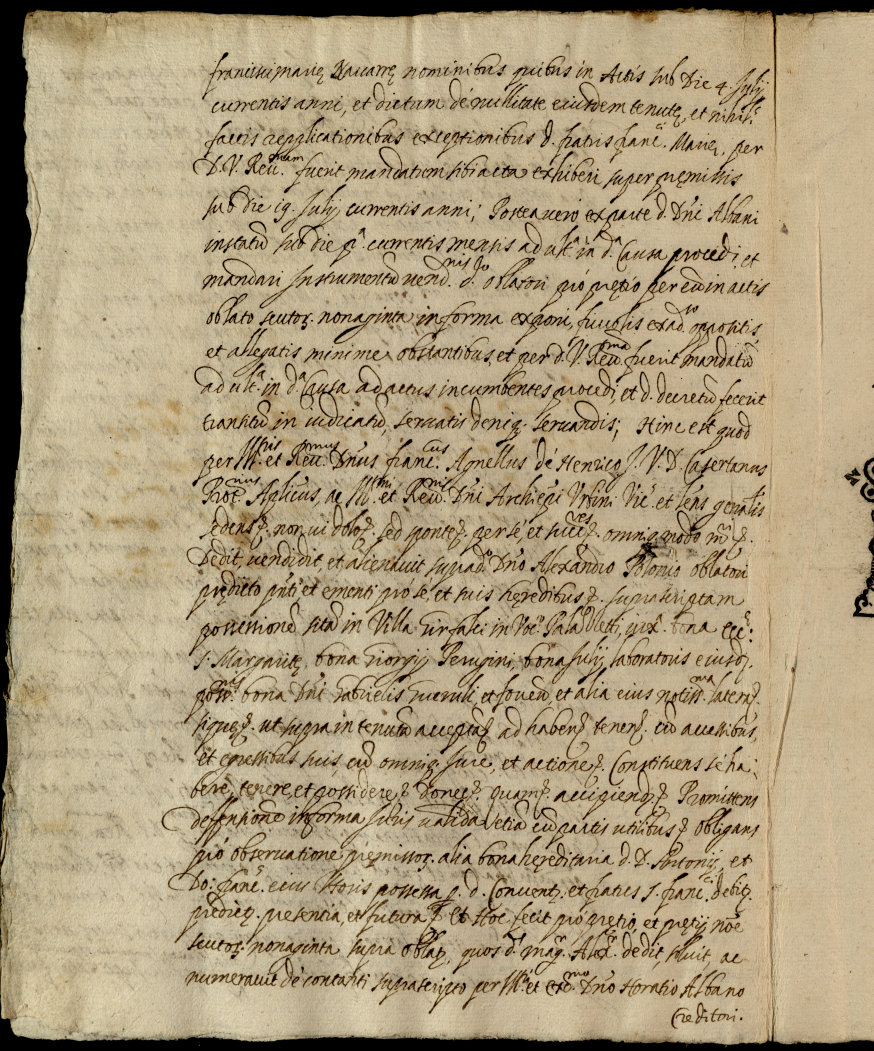 francisci marię Nauarrę nominibus quibus in Actis sub Die 4 Julij
currentis anni, et dictum dè nullitate eiusdem tenutę, et nihil:
factis replicationibus exceptionibus d. fratris franc.ci Marię, per
D. V. Reu.mam fuerit mandatum sibi acta exhiberi super pręmissis
sub die 19 Julij currentis anni; Postea uerò ex parte d. Dni Albani
instatū sub die p.a currentis mensis ad ult.a in d.a Causa procedi, et
mandari Instrumentū uend.nis d.o oblatori prò pretio per eū in actis
oblato scutor. nonaginta in forma exponi, friuolis ex ad.so oppositis,
et allegatis minime obstantibus, et per d. V. Reu.ma fuerit mandatū
ad ult.a in d.a Causa ad actus incumbentes procedi, et d. decretū fecerit
transitū in iudicatū, seruatis deniq. seruandis; Hinc est quod
per Ill.ris et Reu.mus Dnus franc.cus Agnellus de Henrico J. V. D. Casertanus
Prot.nus Aplicus, ac Ill.mi et Reu.mi Dni Archiepi Urbini Vic. et Lcns genalis
sedens. non ui dolo. sed sponte. per sè, et succ.res omni q. modo
Dedit, uendidit, et alienauit suprad.o Dno Alexandro Polonio oblatori
prędicto pnti et ementi prò sè, et suis hęredibus suprascriptam
possessionē sitā in Villa in Voc.o bona Ecc.ę
S. Margaritę, bona Giorgij Perugini, bona Julij laboratoris eiusd.
bona Dni Gabrielis et alia eius notiss.ma latera.
ut supra in tenutā accepta. ad habend. tenend. cū accessibus,
et egressibus suis, cū omniq. iure, et actione. Constituens sè ha:
bere, tenere, et possidere donec. quam. accipiend. Promittens
deffensione in forma Juris ualida etiā cū pactis utilibus obligans
prò obseruatione premissor. alia bona hęreditaria d. D. Antonij, et
Do: franc. eius possessa d. Conuent. et fratres S. franc.ci debit.
predict. presentia, et futura Et Hoc fecit prò pretio, et pretij noē
scutor. nonaginta supra oblat. quos d. mag. Alex. dedit, soluit, ac
numerauit de contanti suprascripto per Ill.e et exc.mo Dno Horatio Albano
Creditori.